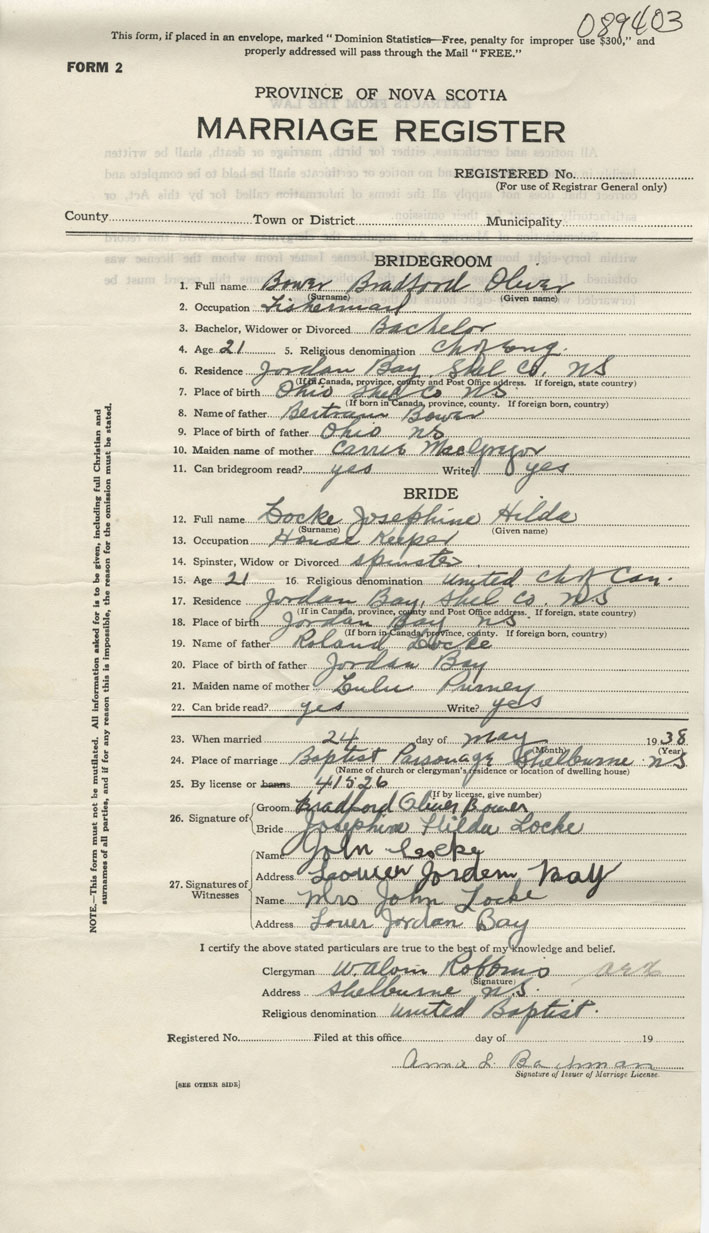 089403
This form, if placed in an envelope, marked "Dominion Statistics—Free, penalty for improper use $300," and
properly addressed will pass through the Mail "FREE."
FORM 2
PROVINCE OF NOVA SCOTIA
MARRIAGE REGISTER
REGISTERED No.
(For use of Registrar General only)
County Town or District Municipality
BRIDEGROOM
1. Full name Bower Bradford Oliver
(Surname) (Given name)
2. Occupation Fisherman
3. Bachelor, Widower or Divorced Bachelor
4. Age 21 5. Religious denomination Ch of Eng.
6. Residence Jordan Bay, Shel Co. NS
(If in Canada, province, county and Post Office address. If foreign, state country)
7. Place of birth Ohio Shel Co NS
(If born in Canada, province, county. If foreign born, country)
8. Name of father Bertram Bower
9. Place of birth of father Ohio NS
10. Maiden name of mother Carrie MacGregor
11. Can bridegroom read? yes Write? yes
BRIDE
12. Full name Locke Josephine Hilda
(Surname) (Given name)
13. Occupation House Keeper
14. Spinster, Widow or Divorced spinster
15. Age 21 16. Religious denomination United Ch of Can.
17. Residence Jordan Bay, Shel Co. NS
(If in Canada, province, county and Post Office address. If foreign, state country)
18. Place of birth Jordan Bay NS
(If born in Canada, province, county. If foreign born, country)
19. Name of father Roland Locke
20. Place of birth of father Jordan Bay
21. Maiden name of mother Lulu Purney
22. Can bride read? yes Write? yes
23. When married 24 day of May 1938
(Month) (Year)
24. Place of marriage Baptist Parsonage Shelburne NS
(Name of church or clergyman's residence or location of dwelling house)
25. By license or banns 41526
(If by license, give number)
26. Signature of Groom Bradford Oliver Bower
Bride Josephine Hilda Locke
27. Signatures of Witnesses
Name John Locke
Address Lower Jordem Bay
Name Mrs John Locke
Address Lower Jordan Bay
I certify the above stated particulars are true to the best of my knowledge and belief.
Clergyman W. Alvin Robbins
(Signature)
Address Shelburne N.S.
Religious denomination United Baptist.
Registered No. Filed at this office day of 19
Signature of Issuer of Marriage License.
[SEE OTHER SIDE]
NOTE.—This form must not be mutilated. All information asked for is to be given, including full Christian and
surnames of all parties, and if for any reason this is impossible, the reason for the omission must be stated.